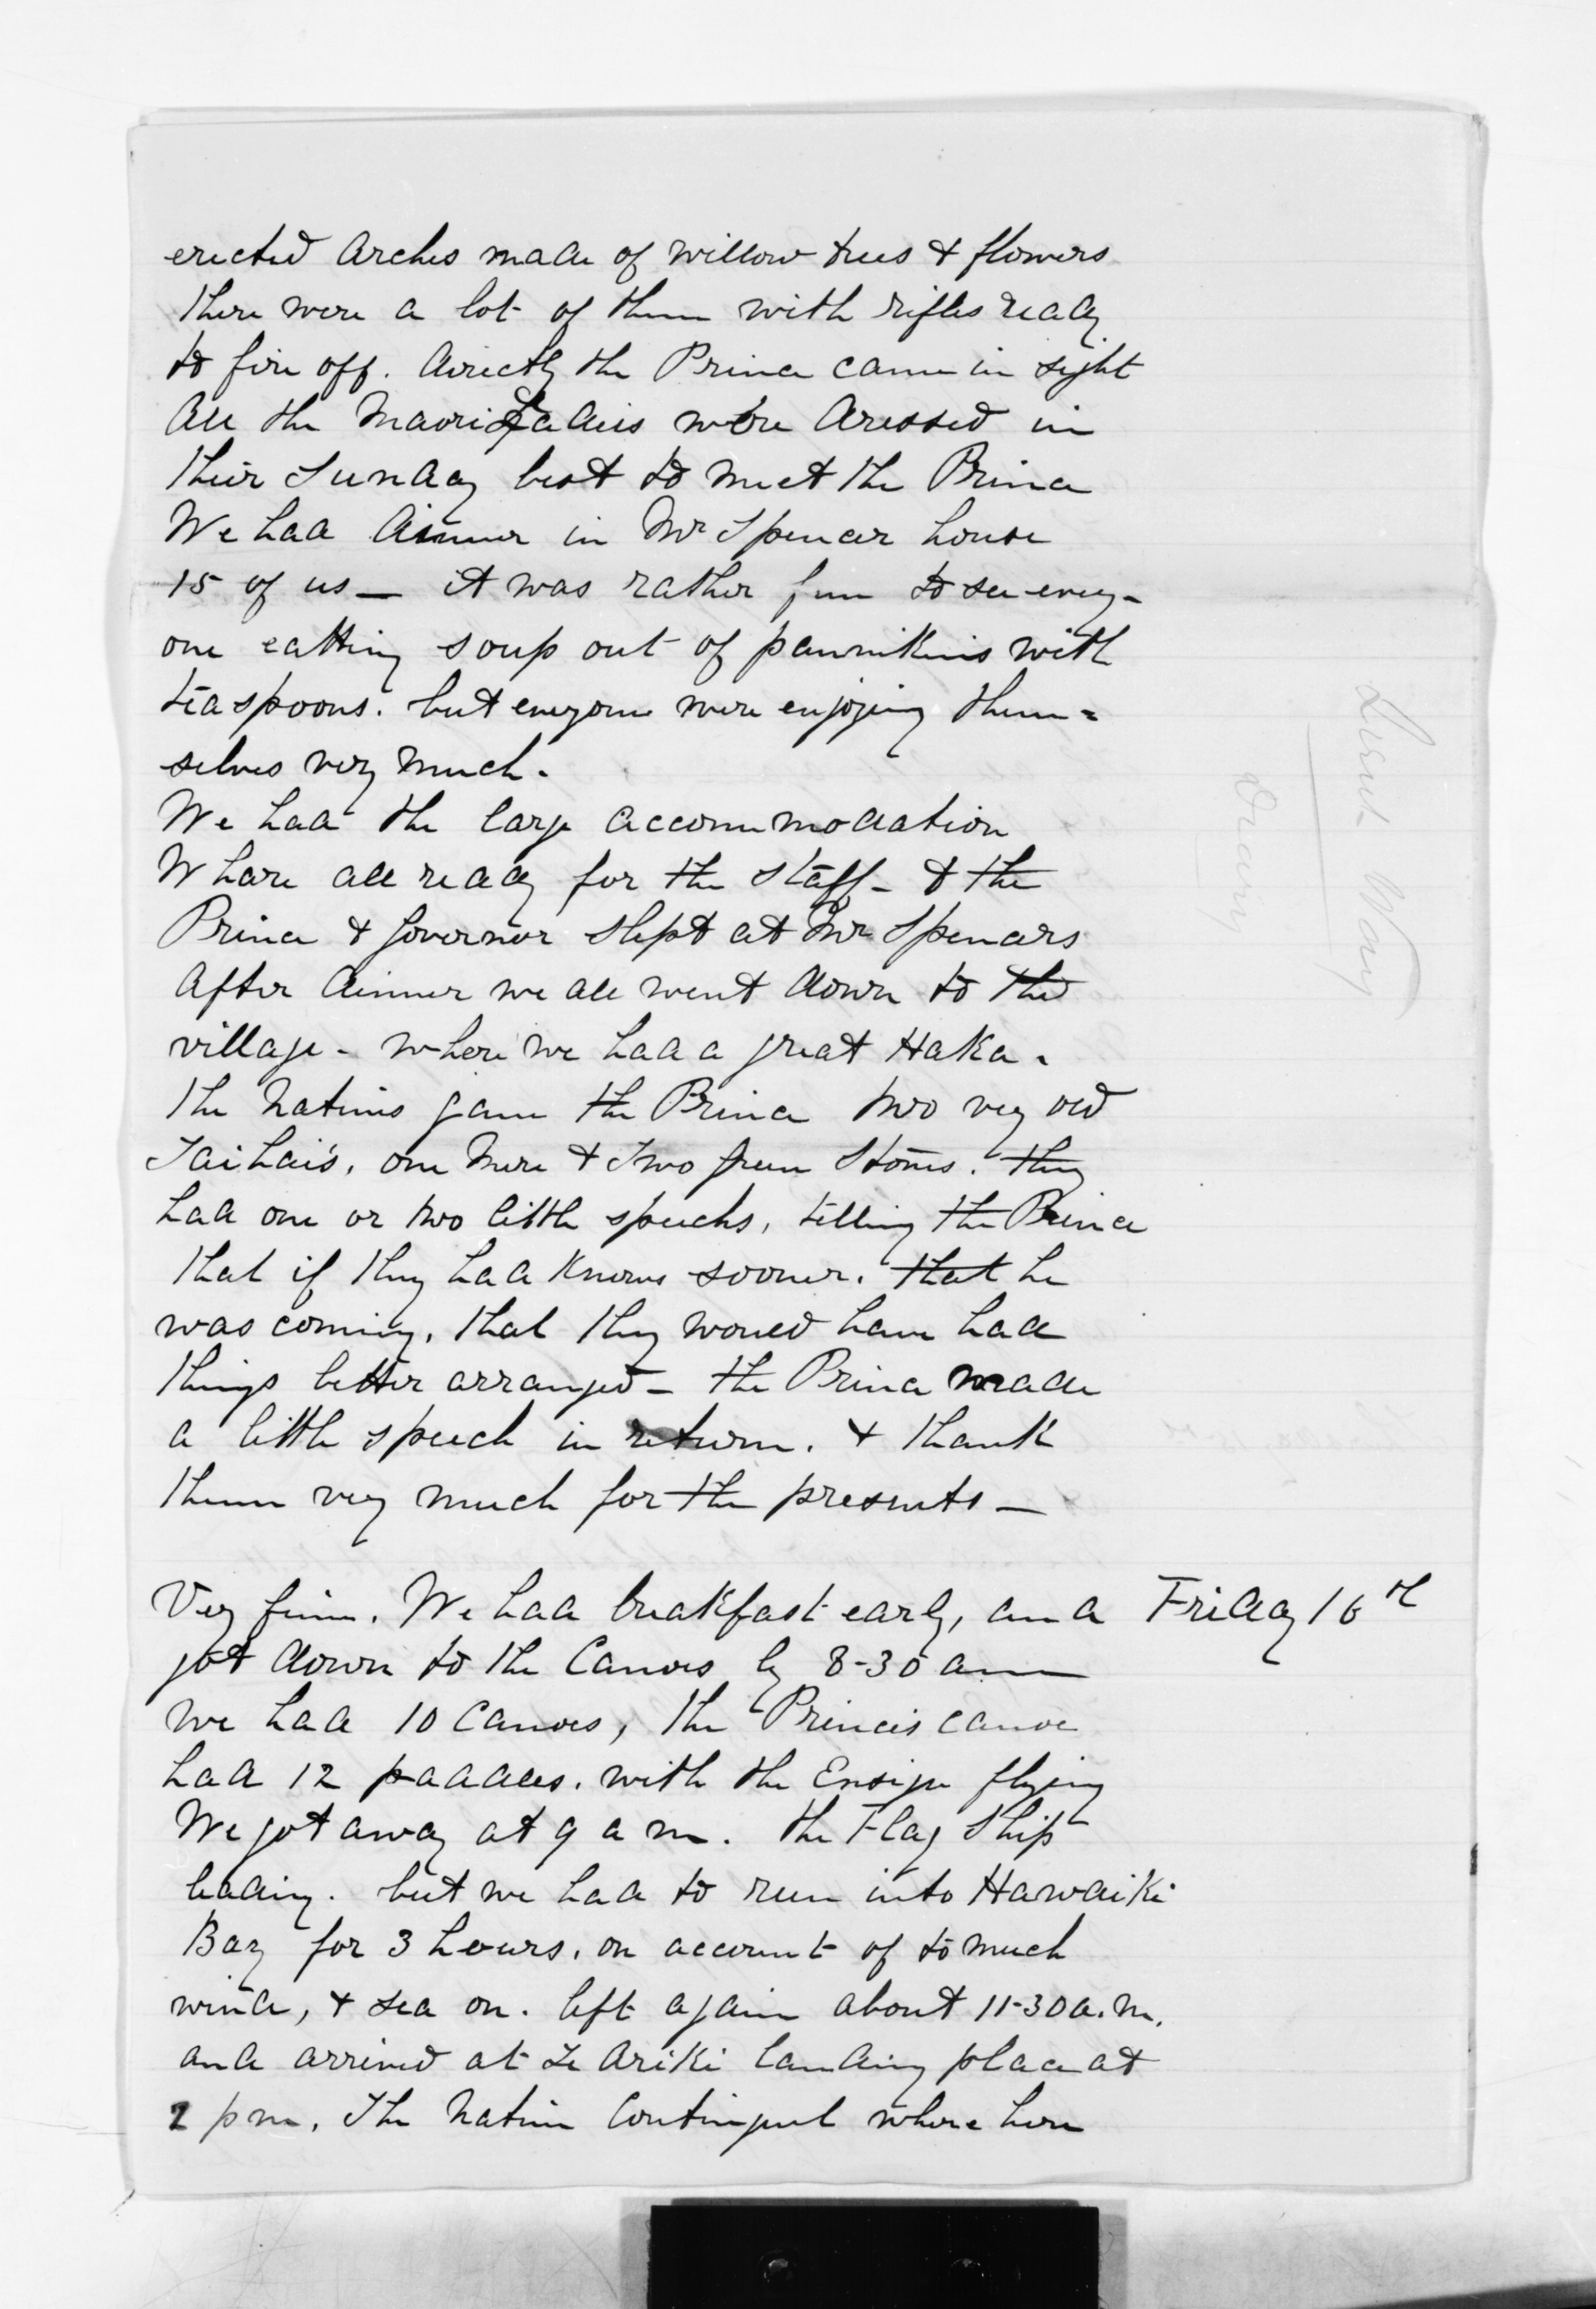 erected arches made of willow trees & flowers
there were a lot of them with rifles ready
to fire off. directly the Prince came in sight
all the Maori Ladies were dressed in
their Sunday best to meet the Prince
We had dinner in Mr Spencer house
15 of us — it was rather fun to see every-
one eatting soup out of pannikins with
teaspoons. but everyone were enjoying them=
selves very much.
We had the large accommodation
Whare all ready for the staff - & the
Prince & Governor slept at Mr Spencers
after dinner we all went down to the
village - where we had a great Haka.
The Natives gave the Prince two very old
Taihai's, one Mere & Two green Stones. they
had one or two little speechs, telling the Prince
that if they had known sooner. that he
was coming, that they would have had
things better arranged - the Prince made
a little speech in return. & thank
them very much for the presents —
Very fine. We had breakfast early, and Friday 16th
got down to the Canoes by 8-30 am
we had 10 Canoes, the Princes canoe
had 12 paddles. with the Ensign flying
We got away at 9 a m. the Flag Ship
leading. but we had to run into Hawaiki
Bay for 3 hours, on account of to much
wind, & sea on. left again about 11-30 a.m.
and arrived at Te Ariki landing place at
2 pm. The Native Contingent where here
Lieut Way
Diary